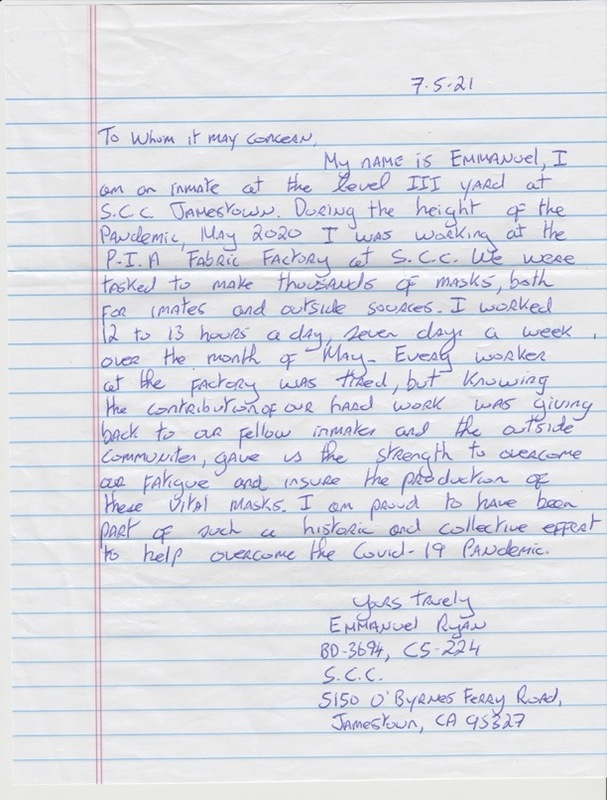 7.5.21
To Whom it may concern,
My name is Emmanuel, I
am an inmate at the level III yard at
S.C.C. Jamestown. During the height of the
Pandemic, May 2020 I was working at the
P.I.A Fabric Factory at S.C.C. We were
tasked to make thousands of masks, both
for imates and outside sources. I worked
12 to 13 hours a day, seven days a week,
over the month of May. Every worker
at the factory was tired, but knowing
the contribution of our hard work was giving
back to our fellow inmates and the outside
communites, gave us the strength to overcome
our fatigue and insure the production of
these vital masks. I am proud to have been
part of such a historic and collective effort
to help overcome the Covid-19 Pandemic.
Yours truely
Emmanuel Ryan
BD-3694, C5-224
S.C.C.
5150 O'Byrnes Ferry Road,
Jamestown, CA 95327